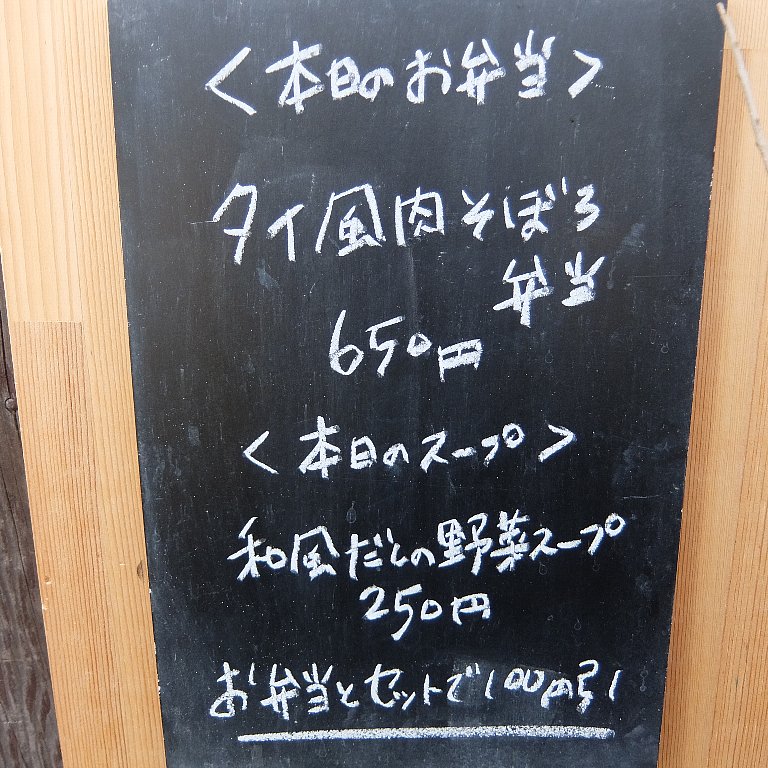 <本日のお弁当>
タイ風肉そぼろ
弁当
650円
<本日のスープ>
和風だしの野菜スープ
250円
お弁当とセットで100円引